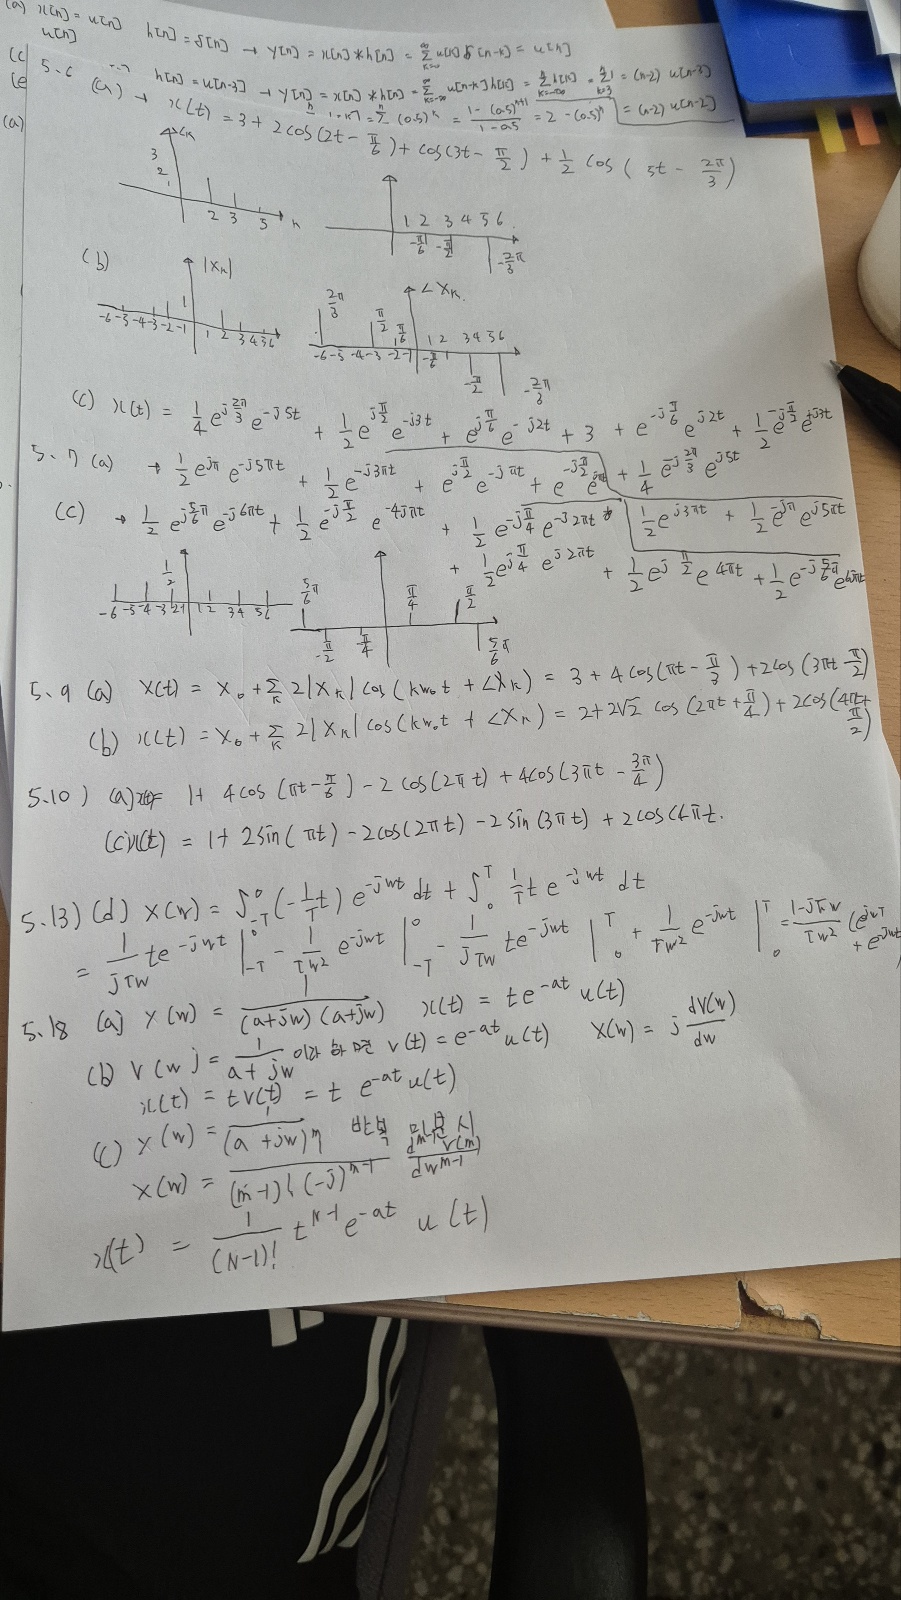 (a) x[n] = u[n] h[n] = δ[n] → y[n] = x[n] * h[n] = Σ u[k] δ[n-k] = u[n]
u[n]
(c h[n] = u[n-3] → y[n] = x[n] * h[n] = Σ u[n-k] h[k] = Σ h[k] = Σ 1 = (n-2) u[n-3]
(e
(0.5)^k = \frac{1-(0.5)^{n+1}}{1-0.5} = 2 - (0.5)^n = (n-2) u[n-2]
5.6
(a) → x(t) = 3 + 2cos(2t - π/6) + cos(3t - π/2) + 1/2 cos(5t - 2π/3)
(a)
3
2
2 3 5
1 2 3 4 5 6
-π/6 -π/2 -2π/3
(b) |X_k| ∠X_k
-6 -5 -4 -3 -2 -1 1 2 3 4 5 6
2π/3 π/2 π/6
-6 -5 -4 -3 -2 -1 1 2 3 4 5 6
-π/6 -π/2 -2π/3
(c) x(t) = 1/4 e^{j2π/3} e^{-j5t} + 1/2 e^{jπ/2} e^{-j3t} + e^{jπ/6} e^{-j2t} + 3 + e^{-jπ/6} e^{j2t} + 1/2 e^{-jπ/2} e^{j3t}
+ 1/4 e^{-j2π/3} e^{j5t}
5.7 (a) → 1/2 e^{jπ} e^{-j5πt} + 1/2 e^{-j3πt} + e^{jπ/2} e^{-jπt} + e^{-jπ/2} e^{jπt}
1/2 e^{j3πt} + 1/2 e^{-jπ} e^{j5πt}
(c) → 1/2 e^{j5/6π} e^{-j6πt} + 1/2 e^{-jπ/2} e^{-4jπt} + 1/2 e^{-jπ/4} e^{-j2πt}
+ 1/2 e^{jπ/4} e^{j2πt} + 1/2 e^{jπ/2} e^{4πt} + 1/2 e^{-j5/6π} e^{6πt}
1/2
-6 -5 -4 -3 -2 -1 1 2 3 4 5 6
5/6π π/4 π/2
-π/2 -π/4 5/6π
5.9 (a) x(t) = X₀ + Σ 2|X_k| cos(kw₀t + ∠X_k) = 3 + 4cos(πt - π/3) + 2cos(3πt - π/2)
(b) x(t) = X₀ + Σ 2|X_k| cos(kw₀t + ∠X_k) = 2 + 2√2 cos(2πt + π/4) + 2cos(4πt + π/2)
5.10) (a) x(t) = 1 + 4cos(πt - π/6) - 2cos(2πt) + 4cos(3πt - 3π/4)
(c) x(t) = 1 + 2sin(πt) - 2cos(2πt) - 2sin(3πt) + 2cos4πt.
5.13) (d) X(w) = ∫_{-T}^{0} (-1/T t) e^{-jwt} dt + ∫_{0}^{T} 1/T t e^{-jwt} dt
= 1/(jTw) te^{-jwt} |_{-T}^{0} - 1/(Tw²) e^{-jwt} |_{-T}^{0} - 1/(jTw) te^{-jwt} |_{0}^{T} + 1/(Tw²) e^{-jwt} |_{0}^{T}
5.18 (a) X(w) = 1/((a+jw)(a+jw)) x(t) = te^{-at} u(t)
(b) V(w) = 1/(a+jw) 이라 하면 v(t) = e^{-at} u(t) X(w) = j dV(w)/dw
x(t) = tv(t) = t e^{-at} u(t)
(c) X(w) = 1/(a+jw)^n 반복 미분 시
X(w) = 1/((m-1)!(-j)^{m-1}) d^{m-1}V(m)/dw^{m-1}
x(t) = 1/(N-1)! t^{N-1} e^{-at} u(t)